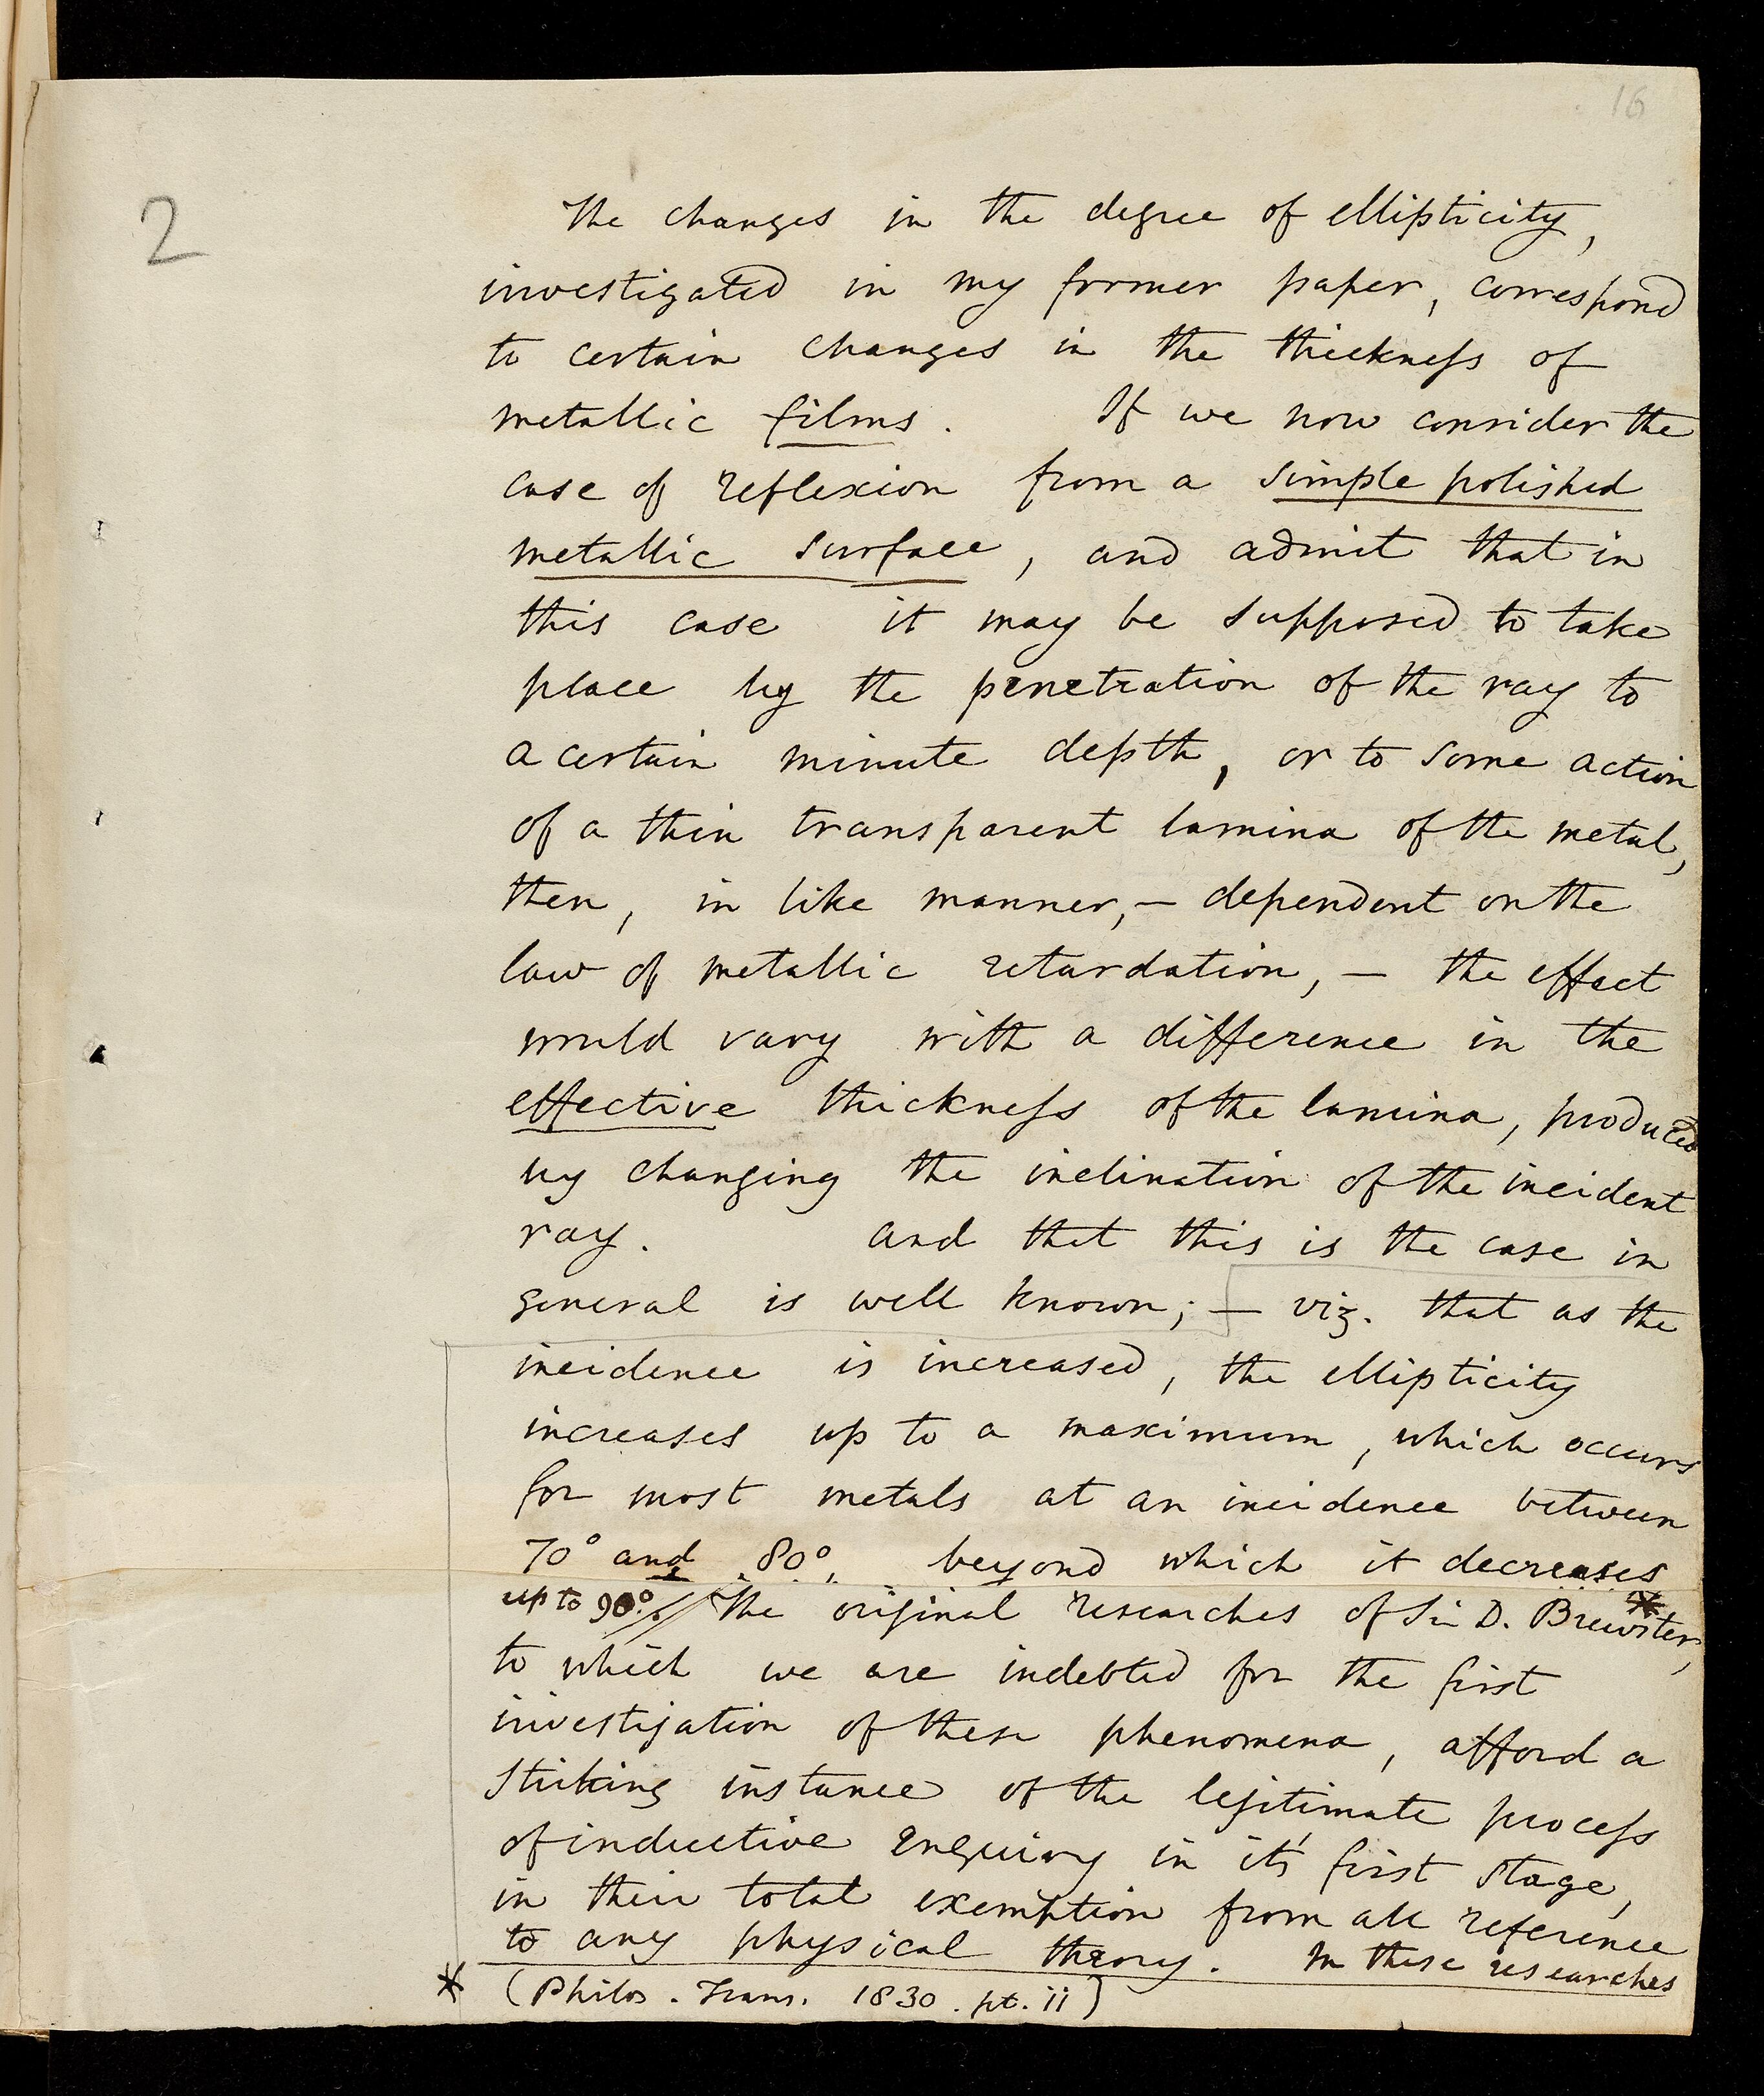 16
2
The changes in the degree of ellipticity,
investigated in my former paper, correspond
to certain changes in the thickneſs of
metallic films. If we now consider the
case of reflexion from a simple polished
metallic surface, and admit that in
this case it may be supposed to take
place by the penetration of the ray to
a certain minute depth, or to some action
of a thin transparent lamina of the metal,
then, in like manner,— dependent on the
law of metallic retardation, — the effect
would vary with a difference in the
effective thickneſs of the lamina, produced
by changing the inclination of the incident
ray. and that this is the case in
general is well known; — viz. that as the
incidence is increased, the ellipticity
increases up to a maximum, which occurs
for most metals at an incidence between
70° and 80°, beyond which it decreases
up to 90°. // The original researches of Sir D. Brewster,*
to which we are indebted for the first
investigation of these phenomena, afford a
striking instance of the legitimate proceſs
of inductive enquiry in it's first stage,
in their total exemption from all reference
to any physical theory. In these researches
* (Philos. Trans. 1830. pt. ii)